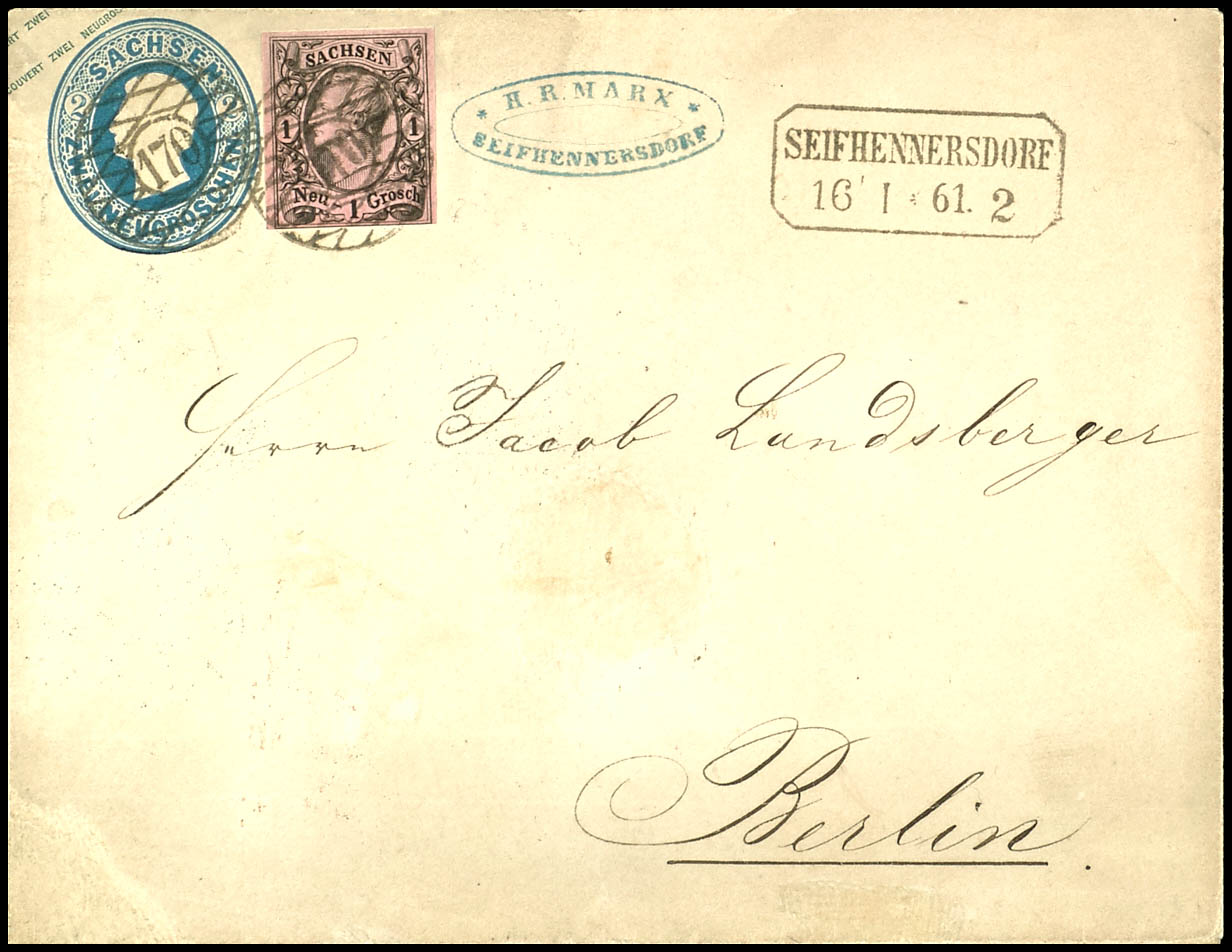 COUVERT ZWEI NEUGROS
RT ZWEI
SACHSEN
2 2
ZWEI NEUGROSCHEN
170
SACHSEN
1 1
Neu 1 Grosch
170
* H. R. MARX *
SEIFHENNERSDORF
SEIFHENNERSDORF
16 I * 61. 2
Herrn Jacob Landsberger
Berlin.